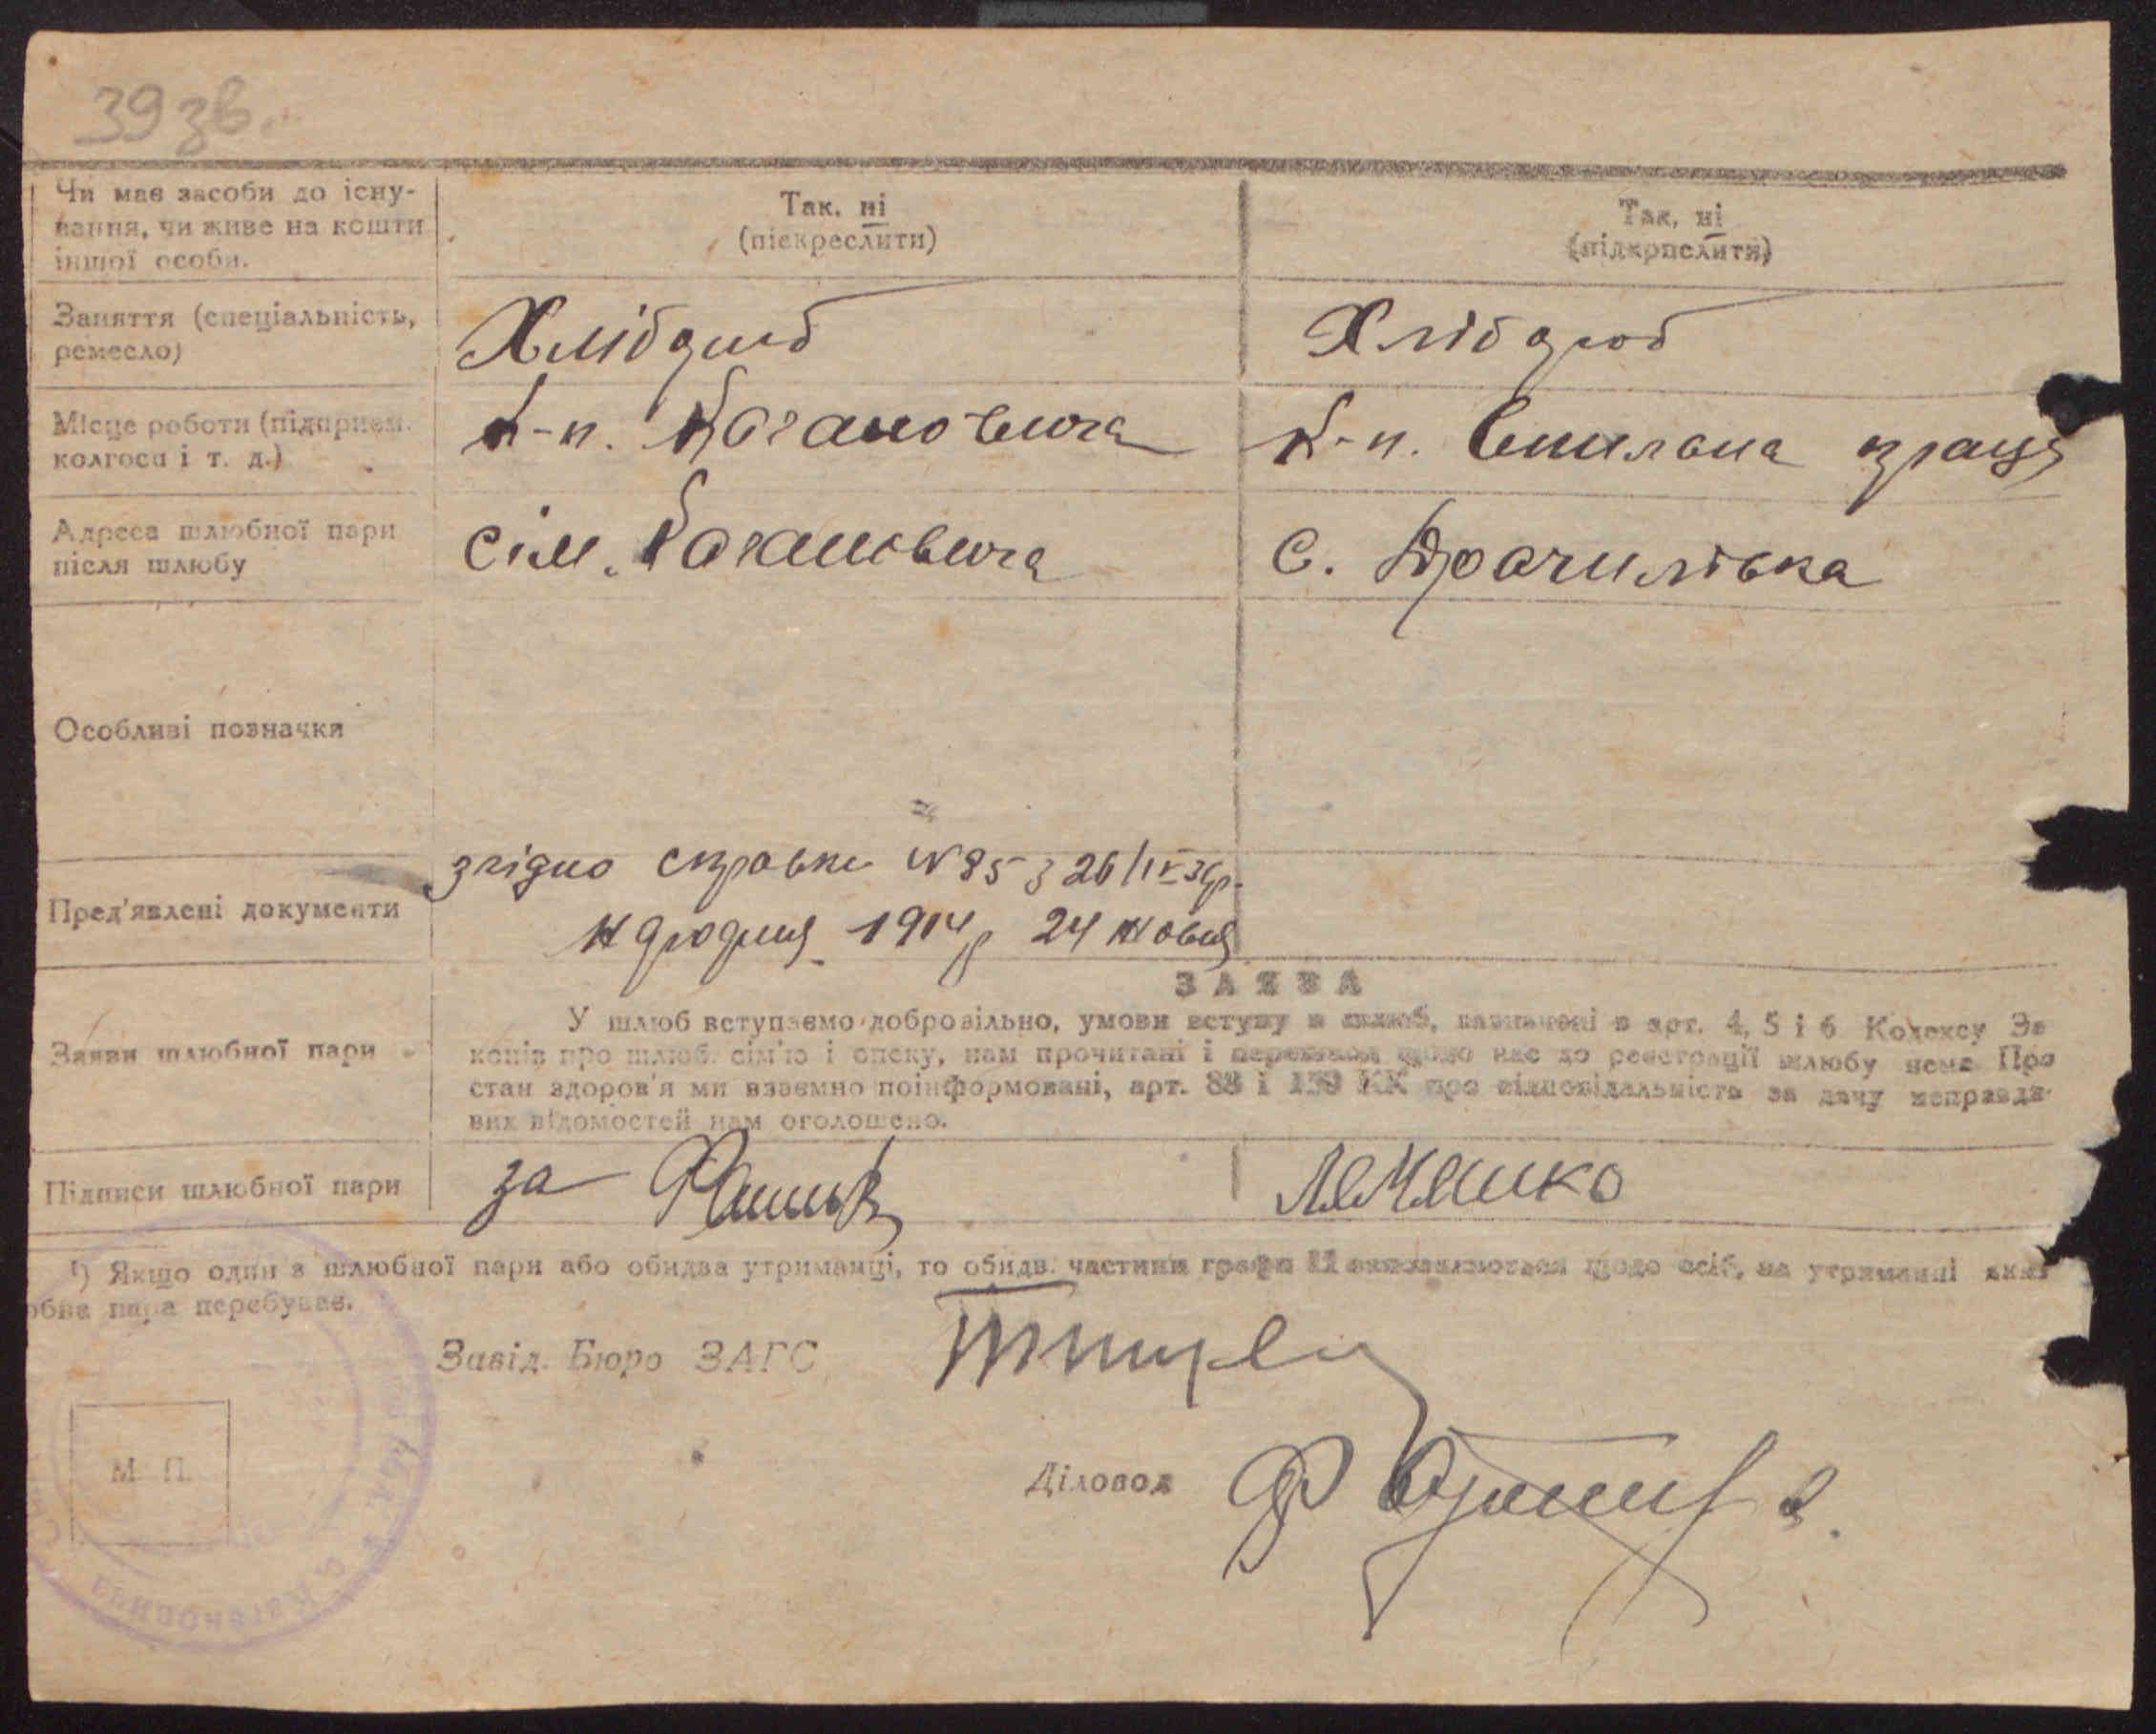 39 зв.
Чи має засоби до існу-
вання, чи живе на кошти
іншої особи.
Так, ні
(піекреслити)
Так, ні
(підкрпслити)
Заняття (спеціальність,
ремесло)
Хлібороб
Хлібороб
Місце роботи (підприєм.
колгосп і т. д.)
к-п. Кагановича
К-п. Спильна праця
Адреса шлюбної пари
після шлюбу
сім. Кагановича
с. Драчилівка
Особливі позначки
Пред'явлені документи
згідно справки № 85 з 26/IV
1914 р 24
Заяви шлюбної пари
ЗАЯВА
У шлюб вступаємо добровільно, умови вступу в шлюб, зазначені в арт. 4, 5 і 6 Кодексу За
конів про шлюб, сім'ю і опеку, нам прочитані і перешкод щодо нас до реєстрації шлюбу нема Про
стан здоров'я ми взаємно поінформовані, арт. 88 і КК про відповідальність за дачу неправди-
вих відомостей нам оголошено.
Підписи шлюбної пари
за
Лемешко
¹) Якщо один з шлюбної пари або обидва утриманці, то обидв. частини графи 11 заповнюються щодо осіб, на утриманні яких
пара перебуває.
Завід. Бюро ЗАГС
М. П.
Діловод
с. Кагановича